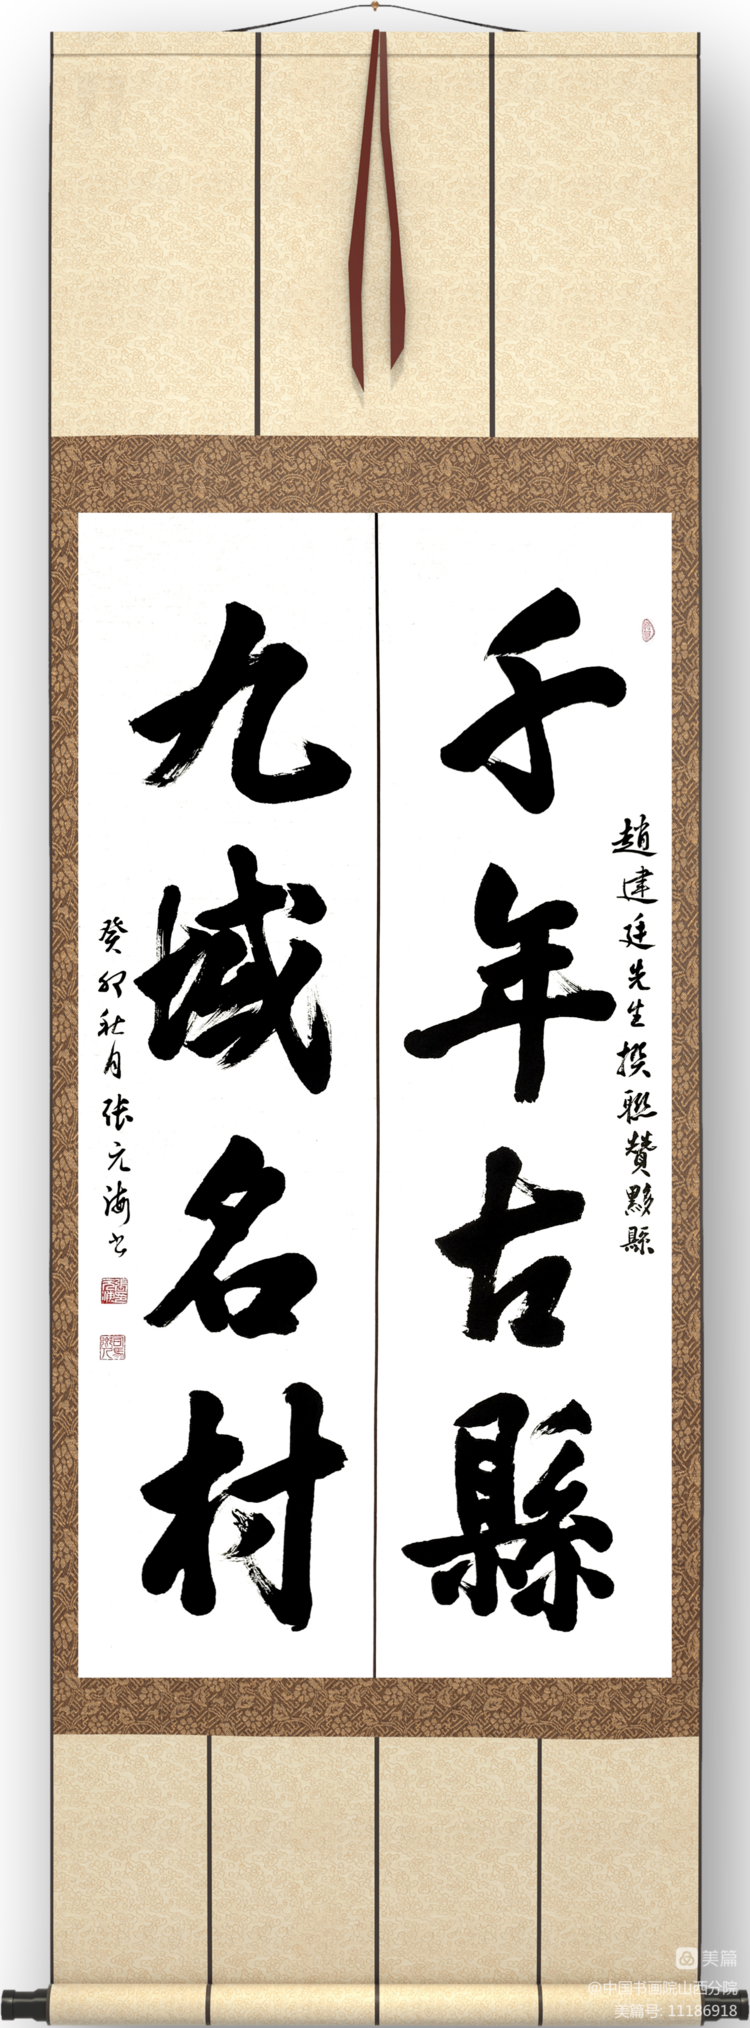 千年古縣
趙建廷先生撰聯贊黟縣
九域名村
癸卯秋月張元海书
美篇
@中国书画院山西分院
美篇号: 11186918